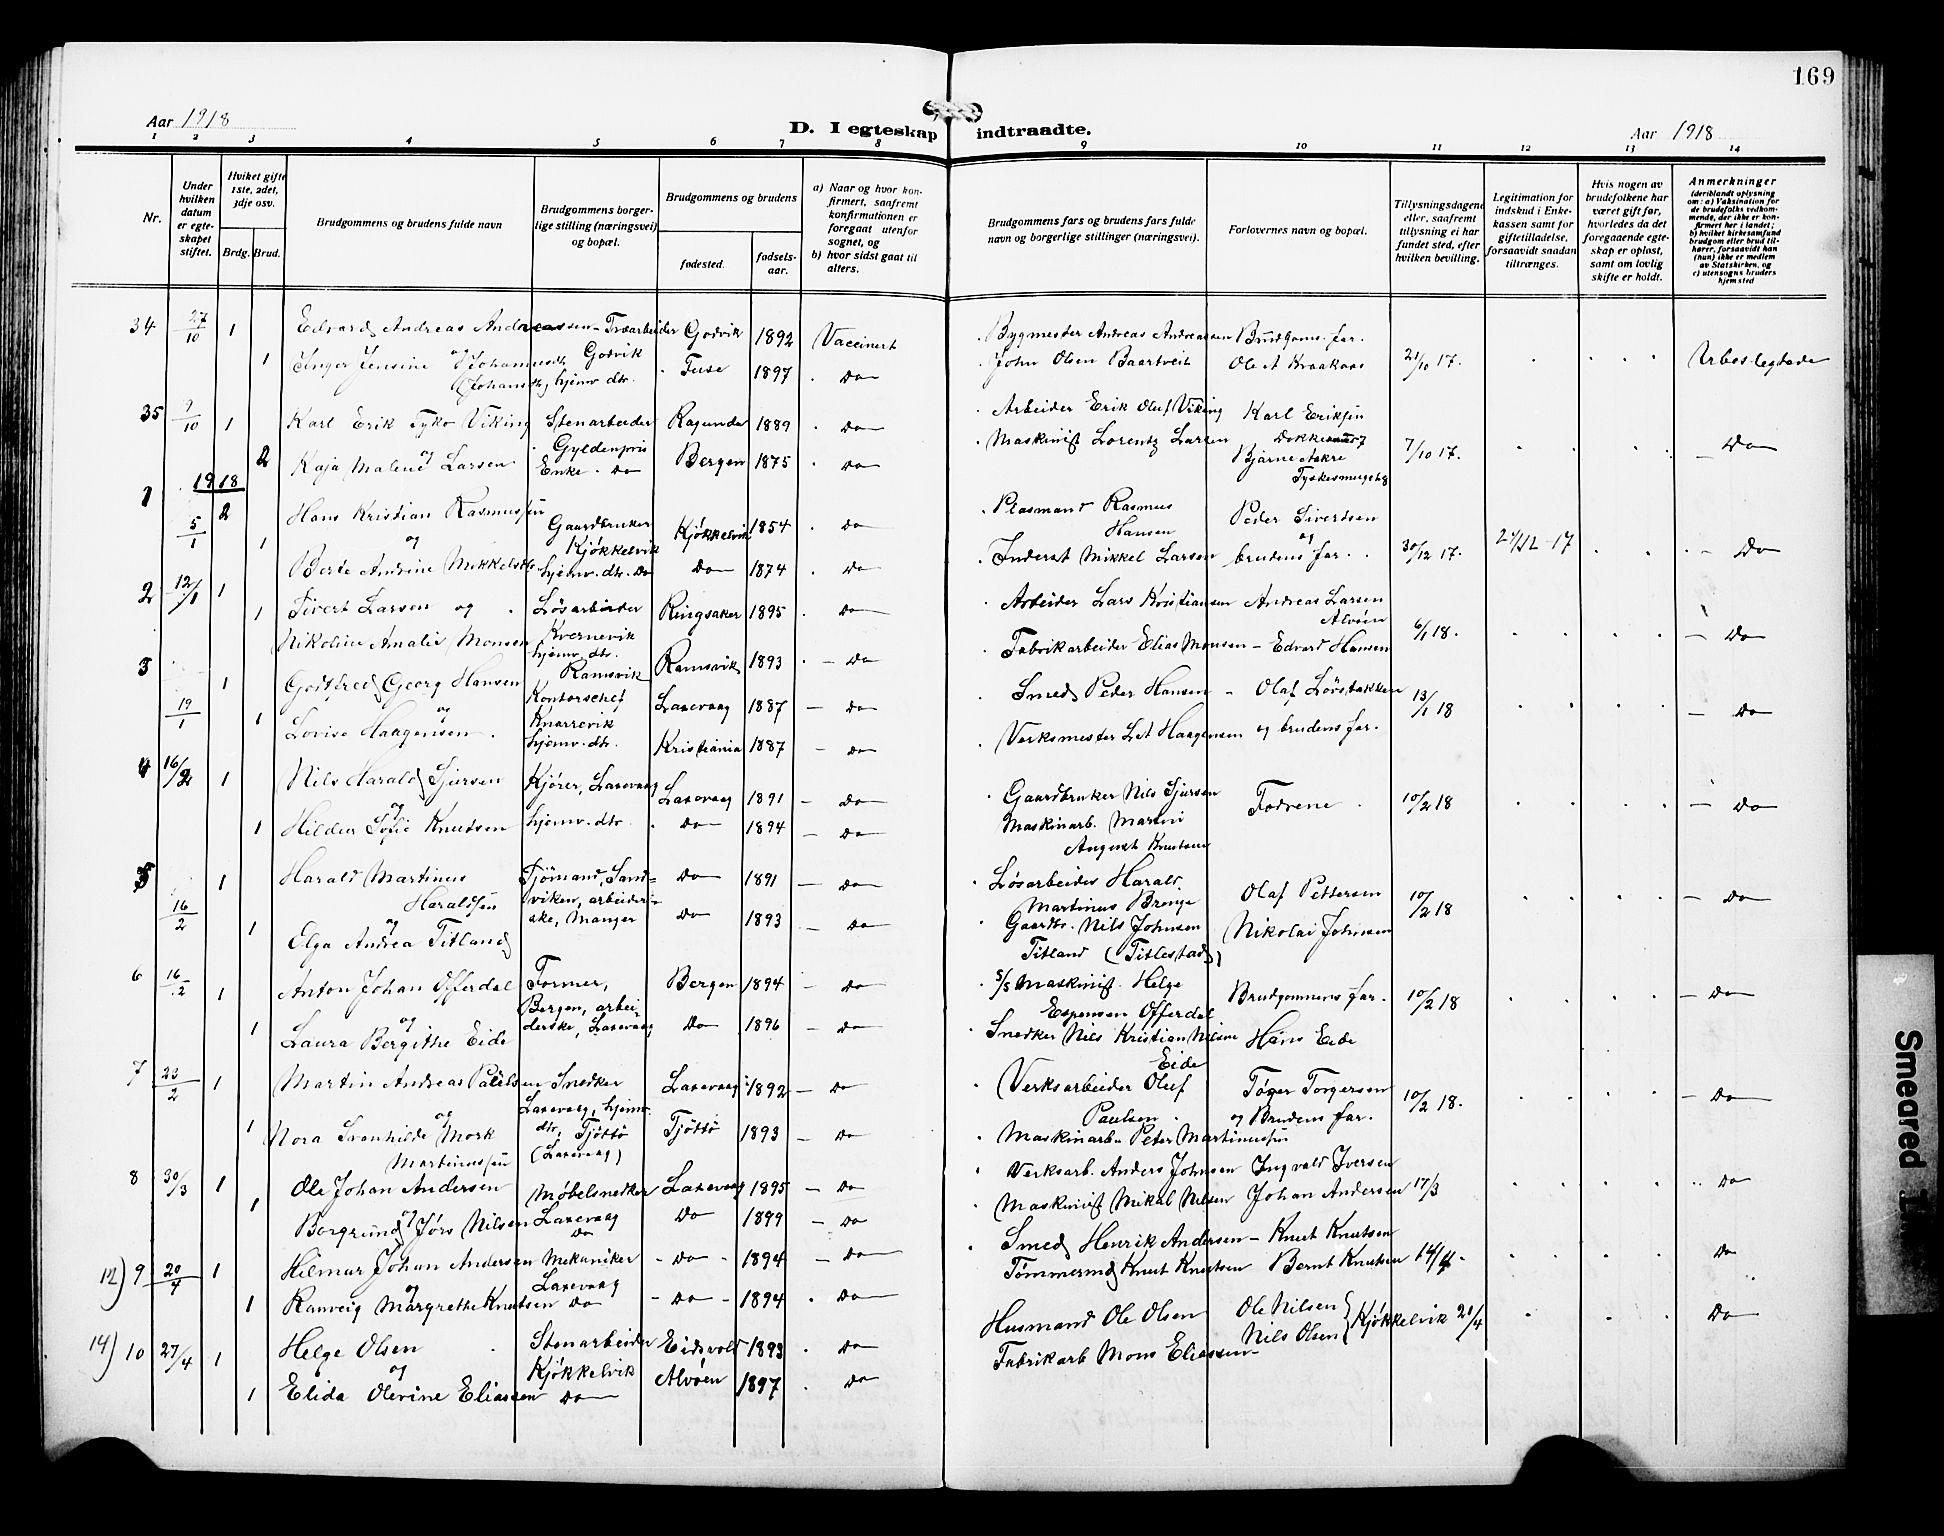 169
Aar 1918
D. I egteskap indtraadte.
Aar 1918
1 2 3 4 5 6 7 8 9 10 11 12 13 14
Nr.
Under hvilken datum er egteskapet stiftet.
Hvilket gifte 1ste, 2det, 3dje osv.
Brdg. Brud.
Brudgommens og brudens fulde navn
Brudgommens borgerlige stilling (næringsvei) og bopæl.
Brudgommens og brudens
fødested.
fødselsaar.
a) Naar og hvor konfirmert, saafremt konfirmationen er foregaat utenfor sognet, og
b) hvor sidst gaat til alters.
Brudgommens fars og brudens fars fulde navn og borgerlige stillinger (næringsvei).
Forlovernes navn og bopæl.
Tillysningsdagene eller, saafremt tillysning ei har fundet sted, efter hvilken bevilling.
Legitimation for indskud i Enkekassen samt for giftetilladelse, forsaavidt saadan tiltrænges.
Hvis nogen av brudefolkene har været gift før, hvorledes da det foregaaende egteskap er opløst, samt om lovlig skifte er holdt.
Anmerkninger
(deriblandt oplysning om: a) Vaksination for de brudefolks vedkommende, der ikke er konfirmert her i landet; b) hvilket kirkesamfund brudgom eller brud tilhører, forsaavidt han (hun) ikke er medlem av Statskirken, og c) utensogns bruders hjemsted
34 27/10 1 Edvard Andreas Andreassen - Træarbeider Godvik 1892 Vaccinert Bygmester Andreas Andreassen Brudgoms far.
og Godvik
1 Inger Jensine Johannesdtr. hjemv. dtr. Fuse 1897 Do John Olsen Baartveit Ole A Kraakaas 21/10 17. Urbeslegtede
35 9/10 1 Karl Erik Tyko Viking Stenarbeider Ragunda 1889 Do Arbeider Erik Oluf Viking Karl Eriksen
og Gyldenpris
2 Kaja Malene Larsen Enke. Do Bergen 1875 Do Maskinist Lorentz Larsen Bjarne Askre 7/10 17. Do
1918
1 5/1 2 Hans Kristian Rasmussen Gaardbruker Kjøkkelvik 1854 Do Plasmand Rasmus Hansen Peder Sivertsen
og Kjøkkelvik og
1 Berte Andrine Mikkelsdtr. hjemv. dtr. Do Do 1874 Do Inderst Mikkel Larsen brudens far. 30/12 17. 21/12-17 Do
2 12/1 1 Sivert Larsen og Løsarbeider Ringsaker 1895 Do Arbeider Lars Kristiansen Andreas Larsen
Kvernevik Alvøen
1 Nikoline Amalie Monsen hjemv. dtr. Ramsvik Ramsvik 1893 Do Fabrikarbeider Elias Monsen - Edvard Hansen 6/1 18. Do
3 19/1 1 Godtfred Georg Hansen Kontorschef Laxevaag 1887 Do Smed Peder Hansen - Olaf Løvstakken 13/1 18
og Knarrevik
1 Lovise Haagensen. hjemv. dtr. Kristiania 1887 Do Verksmester L A Haagensen og brudens far. Do
4 16/2 1 Nils Harald Sjursen Kjører, Laxevaag Laxevaag 1891 Do Gaardbruker Nils Sjursen Fedrene 10/2 18 Do
og
1 Hildur Sofie Knutsen hjemv. dtr. Do 1894 Do Maskinarb. Martin August Knutsen
5 16/2 1 Harald Martinus Haraldsen Sjømand, Sandviken, arbeiderske, Manger Do 1891 Do Løsarbeider Harald Martinus Brenge Olaf Pettersen 10/2 18 Do
og
1 Elga Andrea Titland Do 1893 Do Gaardbr. Nils Johnsen Titland (Titlestad) Nikolai Johnsen
6 16/2 1 Anton Johan Offerdal Former, Bergen 1894 Do s/s Maskinist Helge Espensen Offerdal Brudgommens far. 10/2 18 Do
og Bergen, arbeiderske, Laxevaag
1 Laura Bergithe Eide Do 1896 Do Snedker Nils Kristian Nilsen Eide Hans Eide
7 23/2 1 Martin Andreas Paulsen Snedker Laxevaag 1892 Do Verksarbeider Oluf Paulsen. Tøger Torgersen 10/2 18. Do
og Laxevaag, hjemv. dtr, Tjøttø (Laxevaag) og Brudens far.
1 Nora Svanhilde Mork Martinussen Tjøttø 1893 Do Maskinarb. Peter Martinussen
8 30/3 1 Ole Johan Andersen Møbelsnedker Laxevaag 1895 Do Verksarb. Anders Johnsen Ingvald Iversen
og Laxevaag
1 Borgrund Jørs Nilsen Do Do 1899 Do Maskinist Mikal Nilsen Johan Andersen 17/3 Do
12) 9 20/4 1 Hilmar Johan Andersen Mekaniker Do 1894 Do Smed Henrik Andersen - Knut Knutsen
og Laxevaag
1 Ranveig Margrethe Knutsen Do Do 1894 Do Tømmermd Knut Knutsen Bernt Knutsen 14/4 Do
14) 10 27/4 1 Helge Olsen Stenarbeider Eidsvold 1893 Do Husmand Ole Olsen Ole Nilsen Nils Olsen } Kjøkkelvik 21/4 Do
og Kjøkkelvik
1 Elida Olevine Eliassen Do Alvøen 1897 Do Fabrikarb Mons Eliassen
Smeared